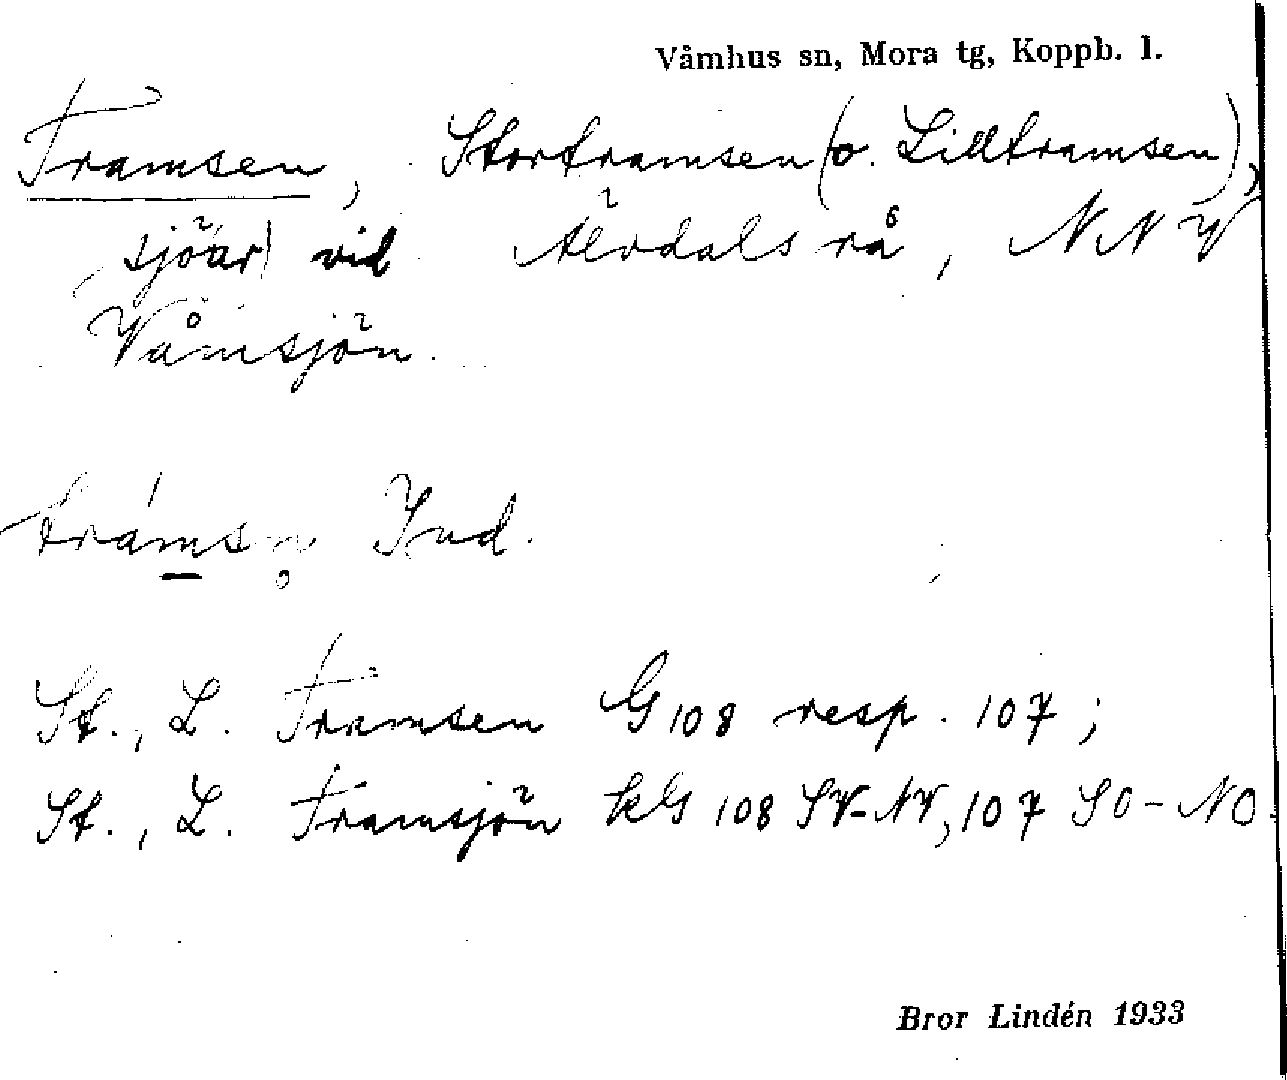 Våmhus sn, Mora tg, Koppb. l.
Tramsen, Stortramsen (o. Lilltramsen),
sjöar) vid Älvdalsrå, NNV
Våmsjön.
trámsn̥ Ind.
St., L. Tramsen G 108 resp. 107;
St., L. Tramsjön kG 108 SV-NV, 107 SO-NO.
Bror Lindén 1933